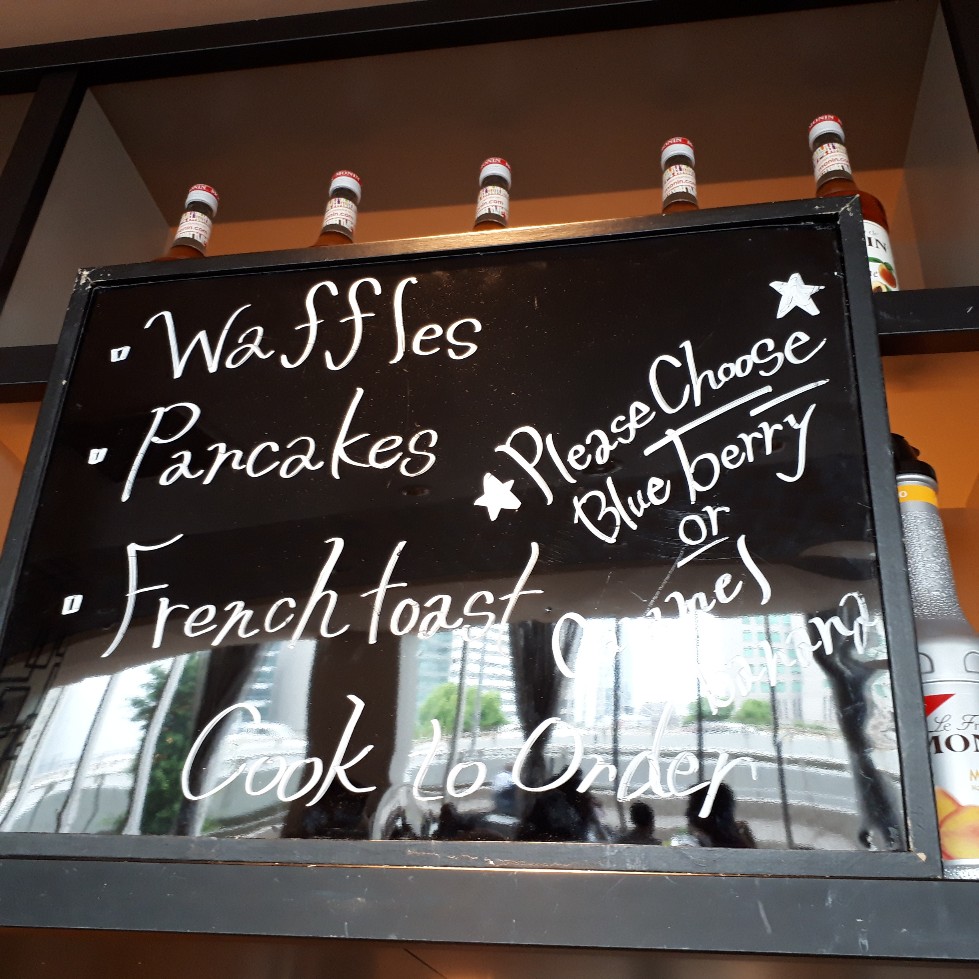 Waffles
Pancakes
French toast
Cook to Order
Please Choose
Blueberry
or
Caramel
banana
MONIN